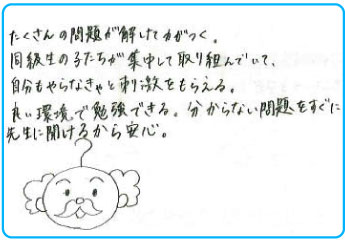 たくさんの問題が解けて力がつく。
同級生の子たちが集中して取り組んでいて、
自分もやらなきゃと刺激をもらえる。
良い環境で勉強できる。分からない問題をすぐに
先生に聞けるから安心。